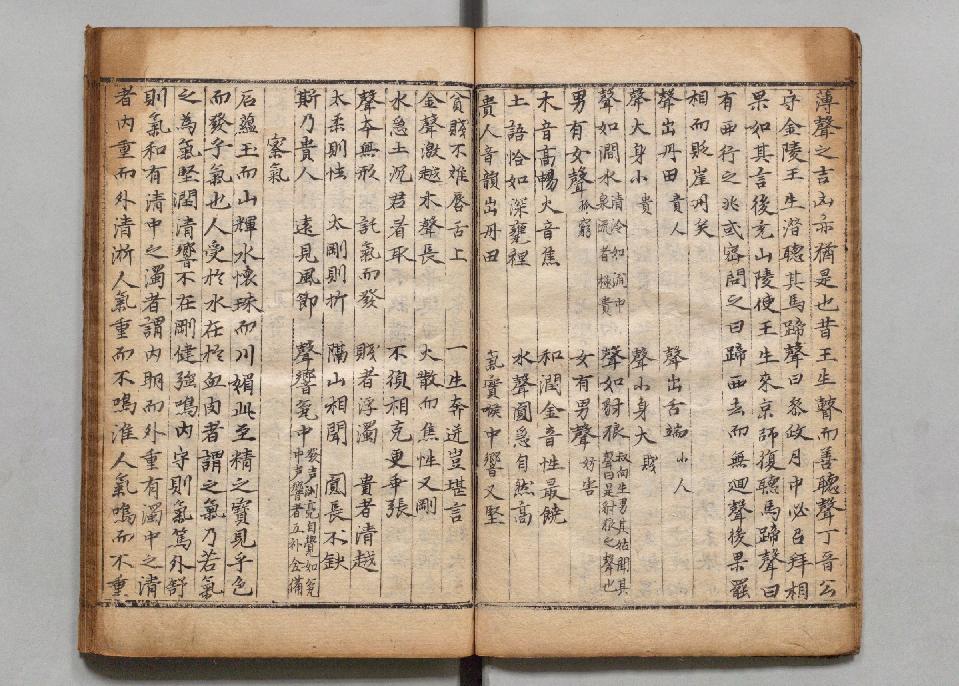 薄聲之吉凶亦猶是也昔王生瞽而善聽聲丁晉公
守金陵王生潛聽其馬蹄聲曰叅政月中必召拜相
果如其言後充山陵使王生來京師復聽馬蹄聲曰
有西行之兆或密問之曰蹄西去而無廻聲後果罷
相而貶崖州矣
聲出丹田 貴人 聲出舌端 小人
聲大身小 貴 聲小身大 賤
聲如澗水 清泠如澗中泉流者極貴 聲如豺狼 叔向生男其姑聞其聲曰是豺狼之聲也
男有女聲 孤窮 女有男聲 妨害
木音高暢火音焦 和潤金音性最饒
土語恰如深甕裡 水聲圓急自然高
貴人音韻出丹田 氣實喉中響又堅
貧賤不離唇舌上 一生奔迸豈堪言
金聲激越水聲長 火散而焦性又剛
水急土沉君看取 不須相克更乖張
聲本無形 託氣而發 賤者浮濁 貴者清越
太柔則怯 太剛則折 隔山相聞 圓長不缺
斯乃貴人 遠見風節 聲響瓮中
察氣
石蘊玉而山輝水懷珠而川媚此至精之寶見乎色
而發乎氣也人受於水在於血肉者謂之氣乃若氣
之為氣堅潤清響不在剛健強鳴內守則氣篤外舒
則氣和有清中之濁者謂內明而外重有濁中之清
者內重而外清浙人氣重而不鳴淮人氣鳴而不重